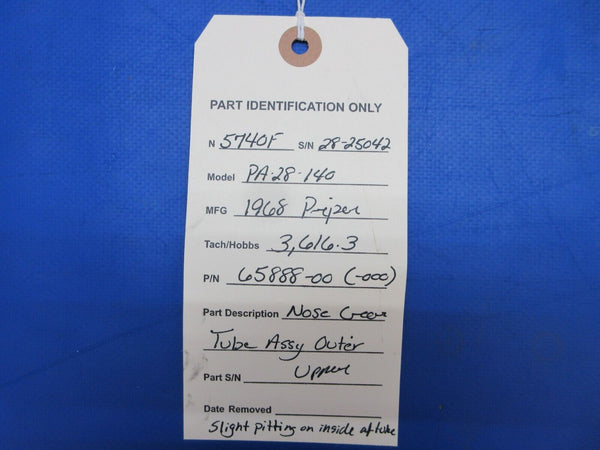 PART IDENTIFICATION ONLY
N 5740F S/N 28-25042
Model PA-28-140
MFG 1968 Piper
Tach/Hobbs 3,616.3
P/N 65888-00 (-000)
Part Description Nose Gear
Tube Assy Outer
Part S/N Upper
Date Removed
Slight pitting on inside of tube